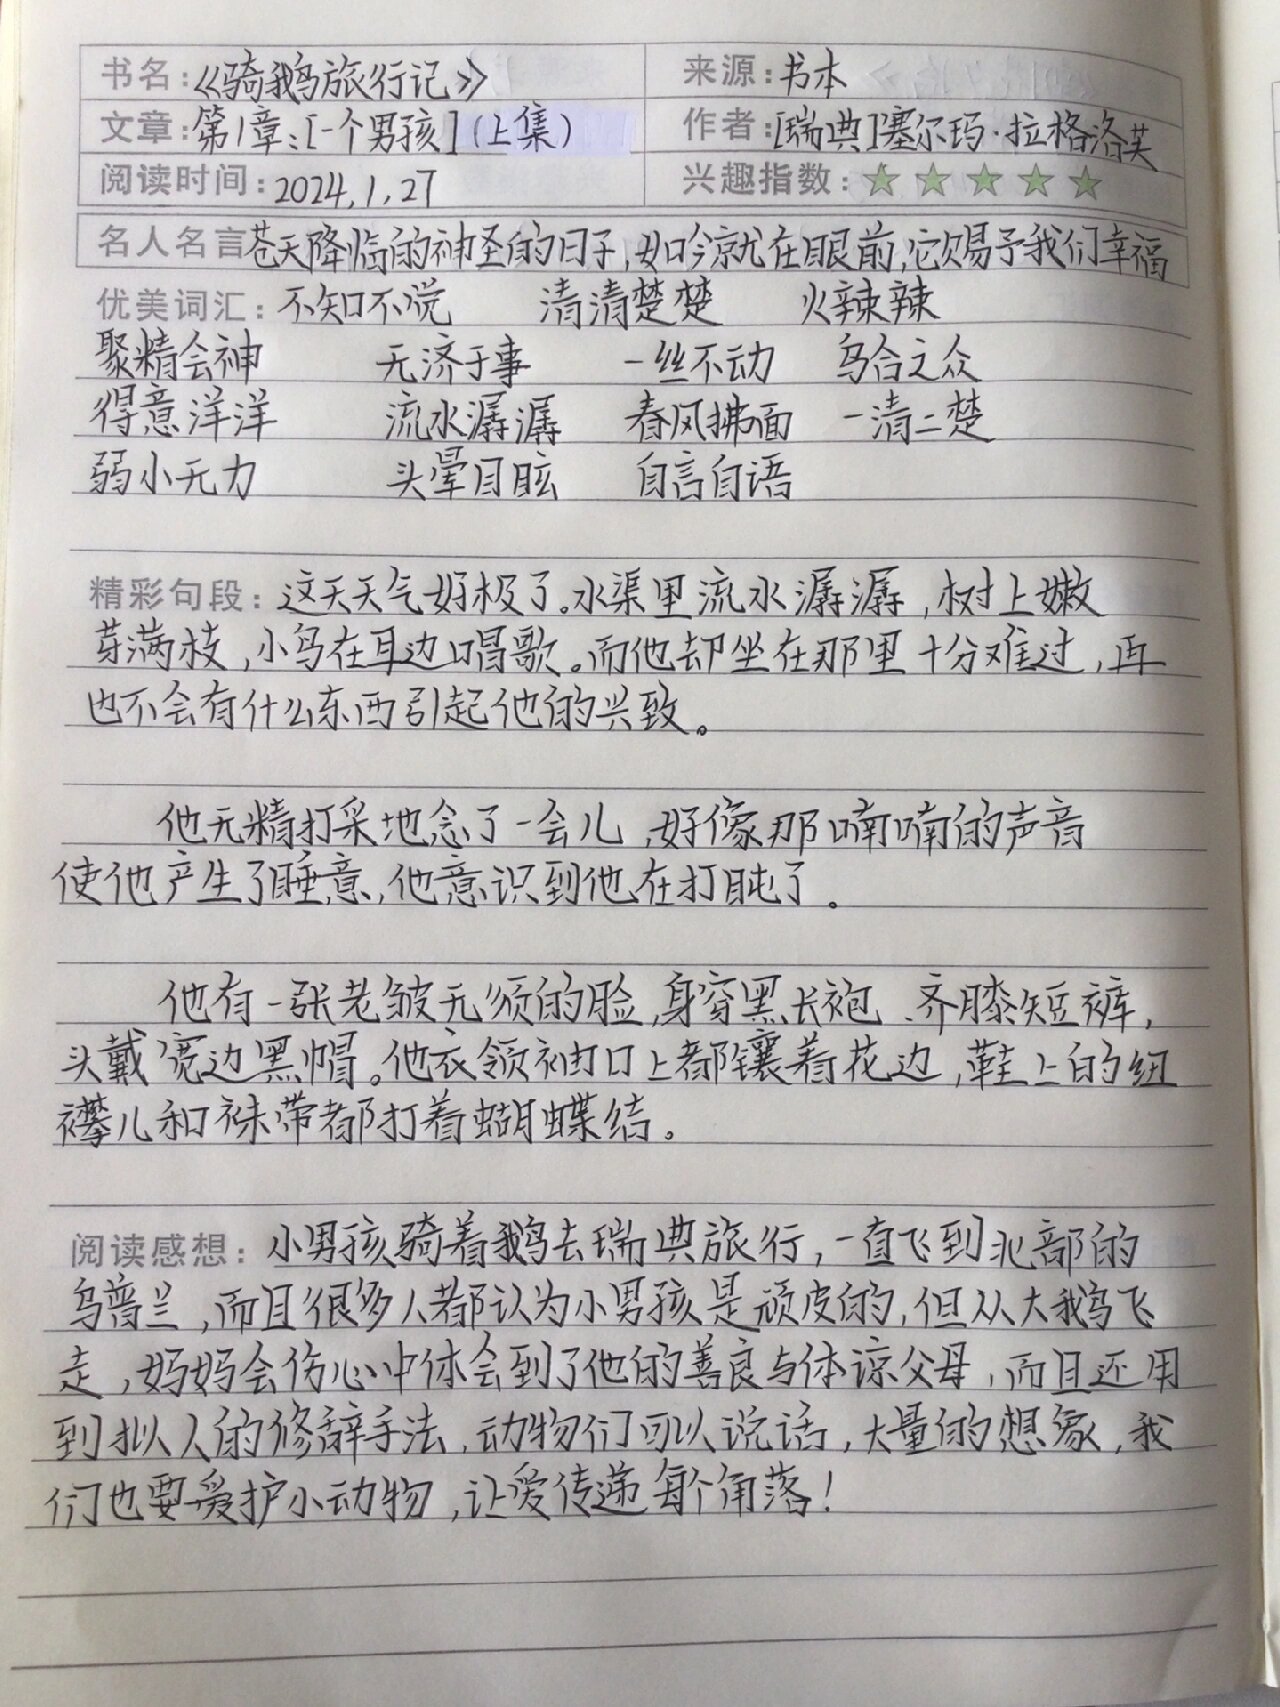 书名:《骑鹅旅行记》 来源:书本
文章:第1章:[一个男孩](上集) 作者:[瑞典]塞尔玛·拉格洛芙
阅读时间:2024,1,27 兴趣指数:★★★★★
名人名言苍天降临的神圣的日子,如今就在眼前,它赐予我们幸福
优美词汇:不知不觉 清清楚楚 火辣辣
聚精会神 无济于事 一丝不动 乌合之众
得意洋洋 流水潺潺 春风拂面 一清二楚
弱小无力 头晕目眩 自言自语
精彩句段:这天天气好极了。水渠里流水潺潺,树上嫩
芽满枝,小鸟在耳边唱歌。而他却坐在那里十分难过,再
也不会有什么东西引起他的兴致。
他无精打采地念了一会儿,好像那喃喃的声音
使他产生了睡意,他意识到他在打盹了。
他有一张老皱无须的脸,身穿黑长袍、齐膝短裤,
头戴宽边黑帽。他衣领袖口上都镶着花边,鞋上的纽
襻儿和袜带都打着蝴蝶结。
阅读感想:小男孩骑着鹅去瑞典旅行,一直飞到北部的
乌普兰,而且很多人都认为小男孩是顽皮的,但从大鹅飞
走,妈妈会伤心中体会到了他的善良与体谅父母,而且还用
到拟人的修辞手法,动物们可以说话,大量的想象,我
们也要爱护小动物,让爱传递每个角落!